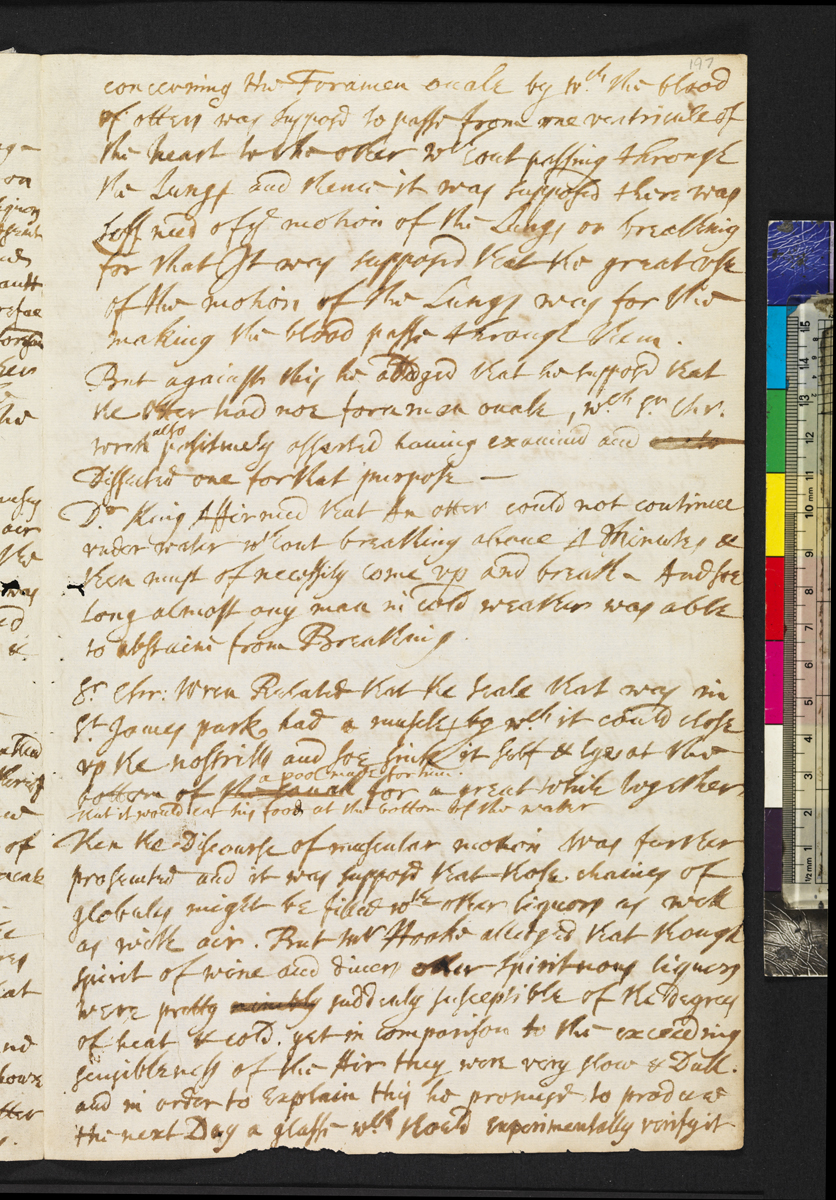 197
concerning the Foramen ouale by wch the blood
of otters was supposd to passe from one ventricule of
the heart to the other wthout passing through
the Lungs and thence it was supposed there was
lesse need of ye motion of the Lungs or breathing
for that It was supposed that the great use
of the motion of the Lungs was for the
making the blood passe through them.
But against this he alledged that he supposd that
the Otter had noe foramen ouale, wch Sr. Chr.
wren also positiuely asserted hauing examind and
Dissected one for that purpose —
Dr King Affirmed that An otter could not continue
vnder water wthout breathing aboue 4 Minutes &
then must of necessity come vp and breath - And soe
Long almost any man in cold weather was able
to abstaine from Breathing.
Sr Chr: Wren Related that the Seale that was in
St James park had a muscle by wch it could close
vp the nostrills and soe sink it self & Lye at the
a pool made for him.
bottom of the canall for a great while together
that it would eat his food at the bottom of the water
Then the Discourse of muscular motion was further
prosecuted and it was supposd that those chaines of
globules might be filled wth other liquors as well
as with air. But Mr Hooke alledged that though
spirit of wine and diuers other spirituous liquors
were pretty nimbly suddenly susceptible of the Degrees
of heat & cold. yet in comparison to the exceeding
sensibleness of the Air they were very slow & Dull.
and in order to Explain this he promised to produce
the next Day a glasse wch should experimentally verify it